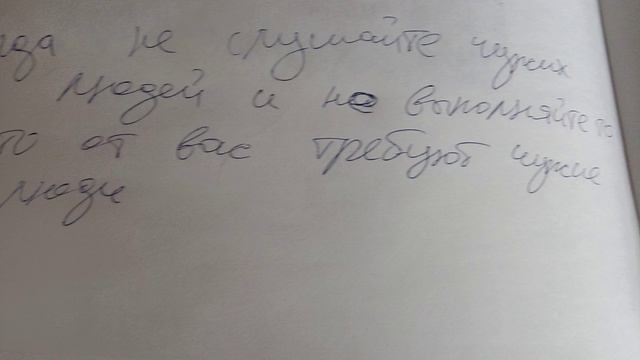 гда не слушайте чужих
людей и не выполняйте то
то от вас требуют чужие
люди